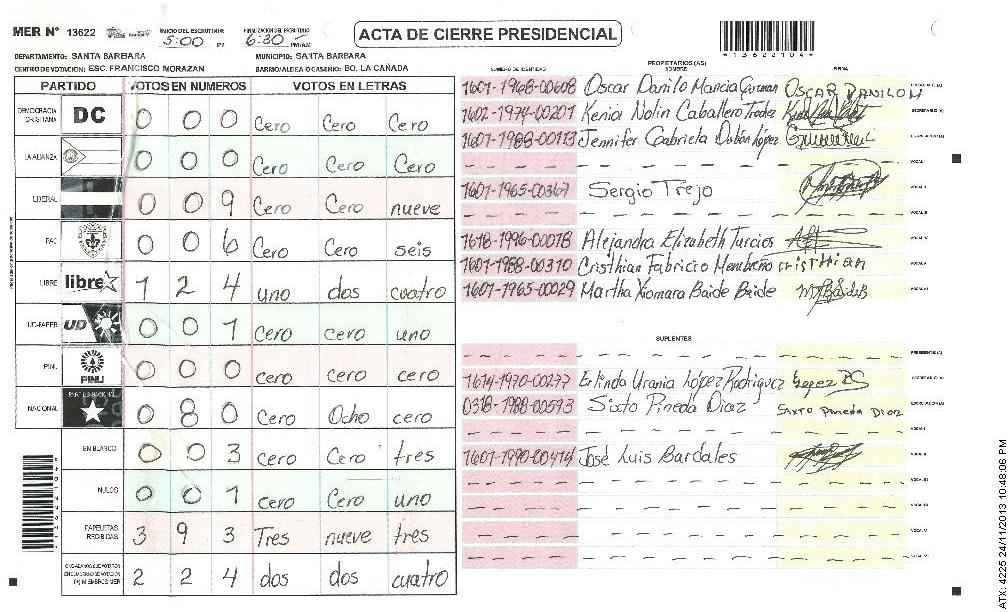 MER N° 13622 INICIO DEL ESCRUTINIO 5:00 PM FINALIZACION DEL ESCRUTINIO 6:30 PM/AM ACTA DE CIERRE PRESIDENCIAL
DEPARTAMENTO: SANTA BARBARA MUNICIPIO: SANTA BARBARA
CENTRO DE VOTACION: ESC. FRANCISCO MORAZAN BARRIO/ALDEA O CASERIO: BO. LA CAÑADA
PARTIDO VOTOS EN NUMEROS VOTOS EN LETRAS
DEMOCRACIA CRISTIANA DC 0 0 0 Cero Cero Cero
LA ALIANZA 0 0 0 Cero Cero Cero
LIBERAL 0 0 9 Cero Cero nueve
PAC 0 0 6 Cero Cero seis
LIBRE libre 1 2 4 uno dos cuatro
UD-FAPER UD 0 0 1 Cero cero uno
PINU PINU 0 0 0 cero cero cero
NACIONAL 0 8 0 Cero Ocho cero
EN BLANCO 0 0 3 cero Cero tres
NULOS 0 0 1 cero Cero uno
PAPELETAS RECIBIDAS 3 9 3 Tres nueve tres
CIUDADANOS QUE VOTARON 2 2 4 dos dos cuatro
*13622104*
PROPIETARIOS (AS)
NUMERO DE IDENTIDAD NOMBRE FIRMA
1601-1968-00608 Oscar Danilo Mancia Guzman OSCAR DANILO M
1602-1974-00201 Kenia Nolin Caballero
1601-1988-00113 Jennifer Gabriela López
1601-1965-00367 Sergio Trejo
1618-1996-00078 Alejandra Elizabeth Turcios
1601-1988-00310 Cristhian Fabricio cristhian
1601-1965-00029 Martha Xiomara Baide Baide
SUPLENTES
1614-1970-00277 Erlinda Urania López Rodriguez
0318-1988-00593 Sixto Pineda Diaz Sixto Pineda Diaz
1601-1990-00414 José Luis Bardales
ATX: 4225 24/11/2013 10:48:06 PM